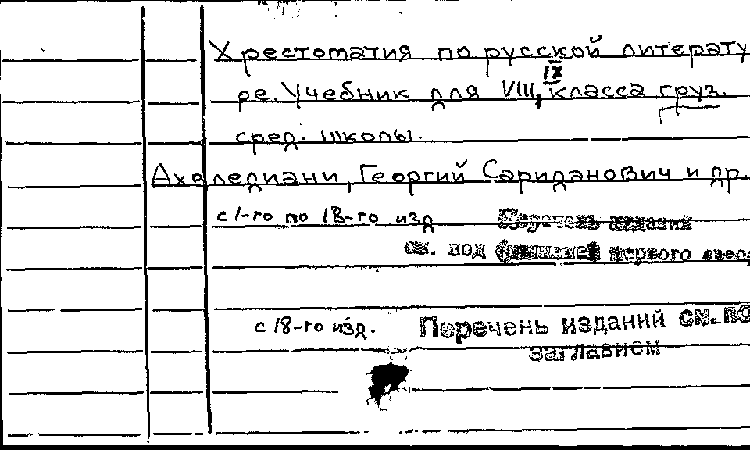 Хрестоматия по русской литерату
ре. Учебник для VIII, IX класса груз.
сред. школы.
Ахвледиани, Георгий Сариданович и др.
с 1-го по 18-го изд
Перечень изданий
см. под фамилией первого
с 18-го изд.
Перечень изданий см. по
заглавием